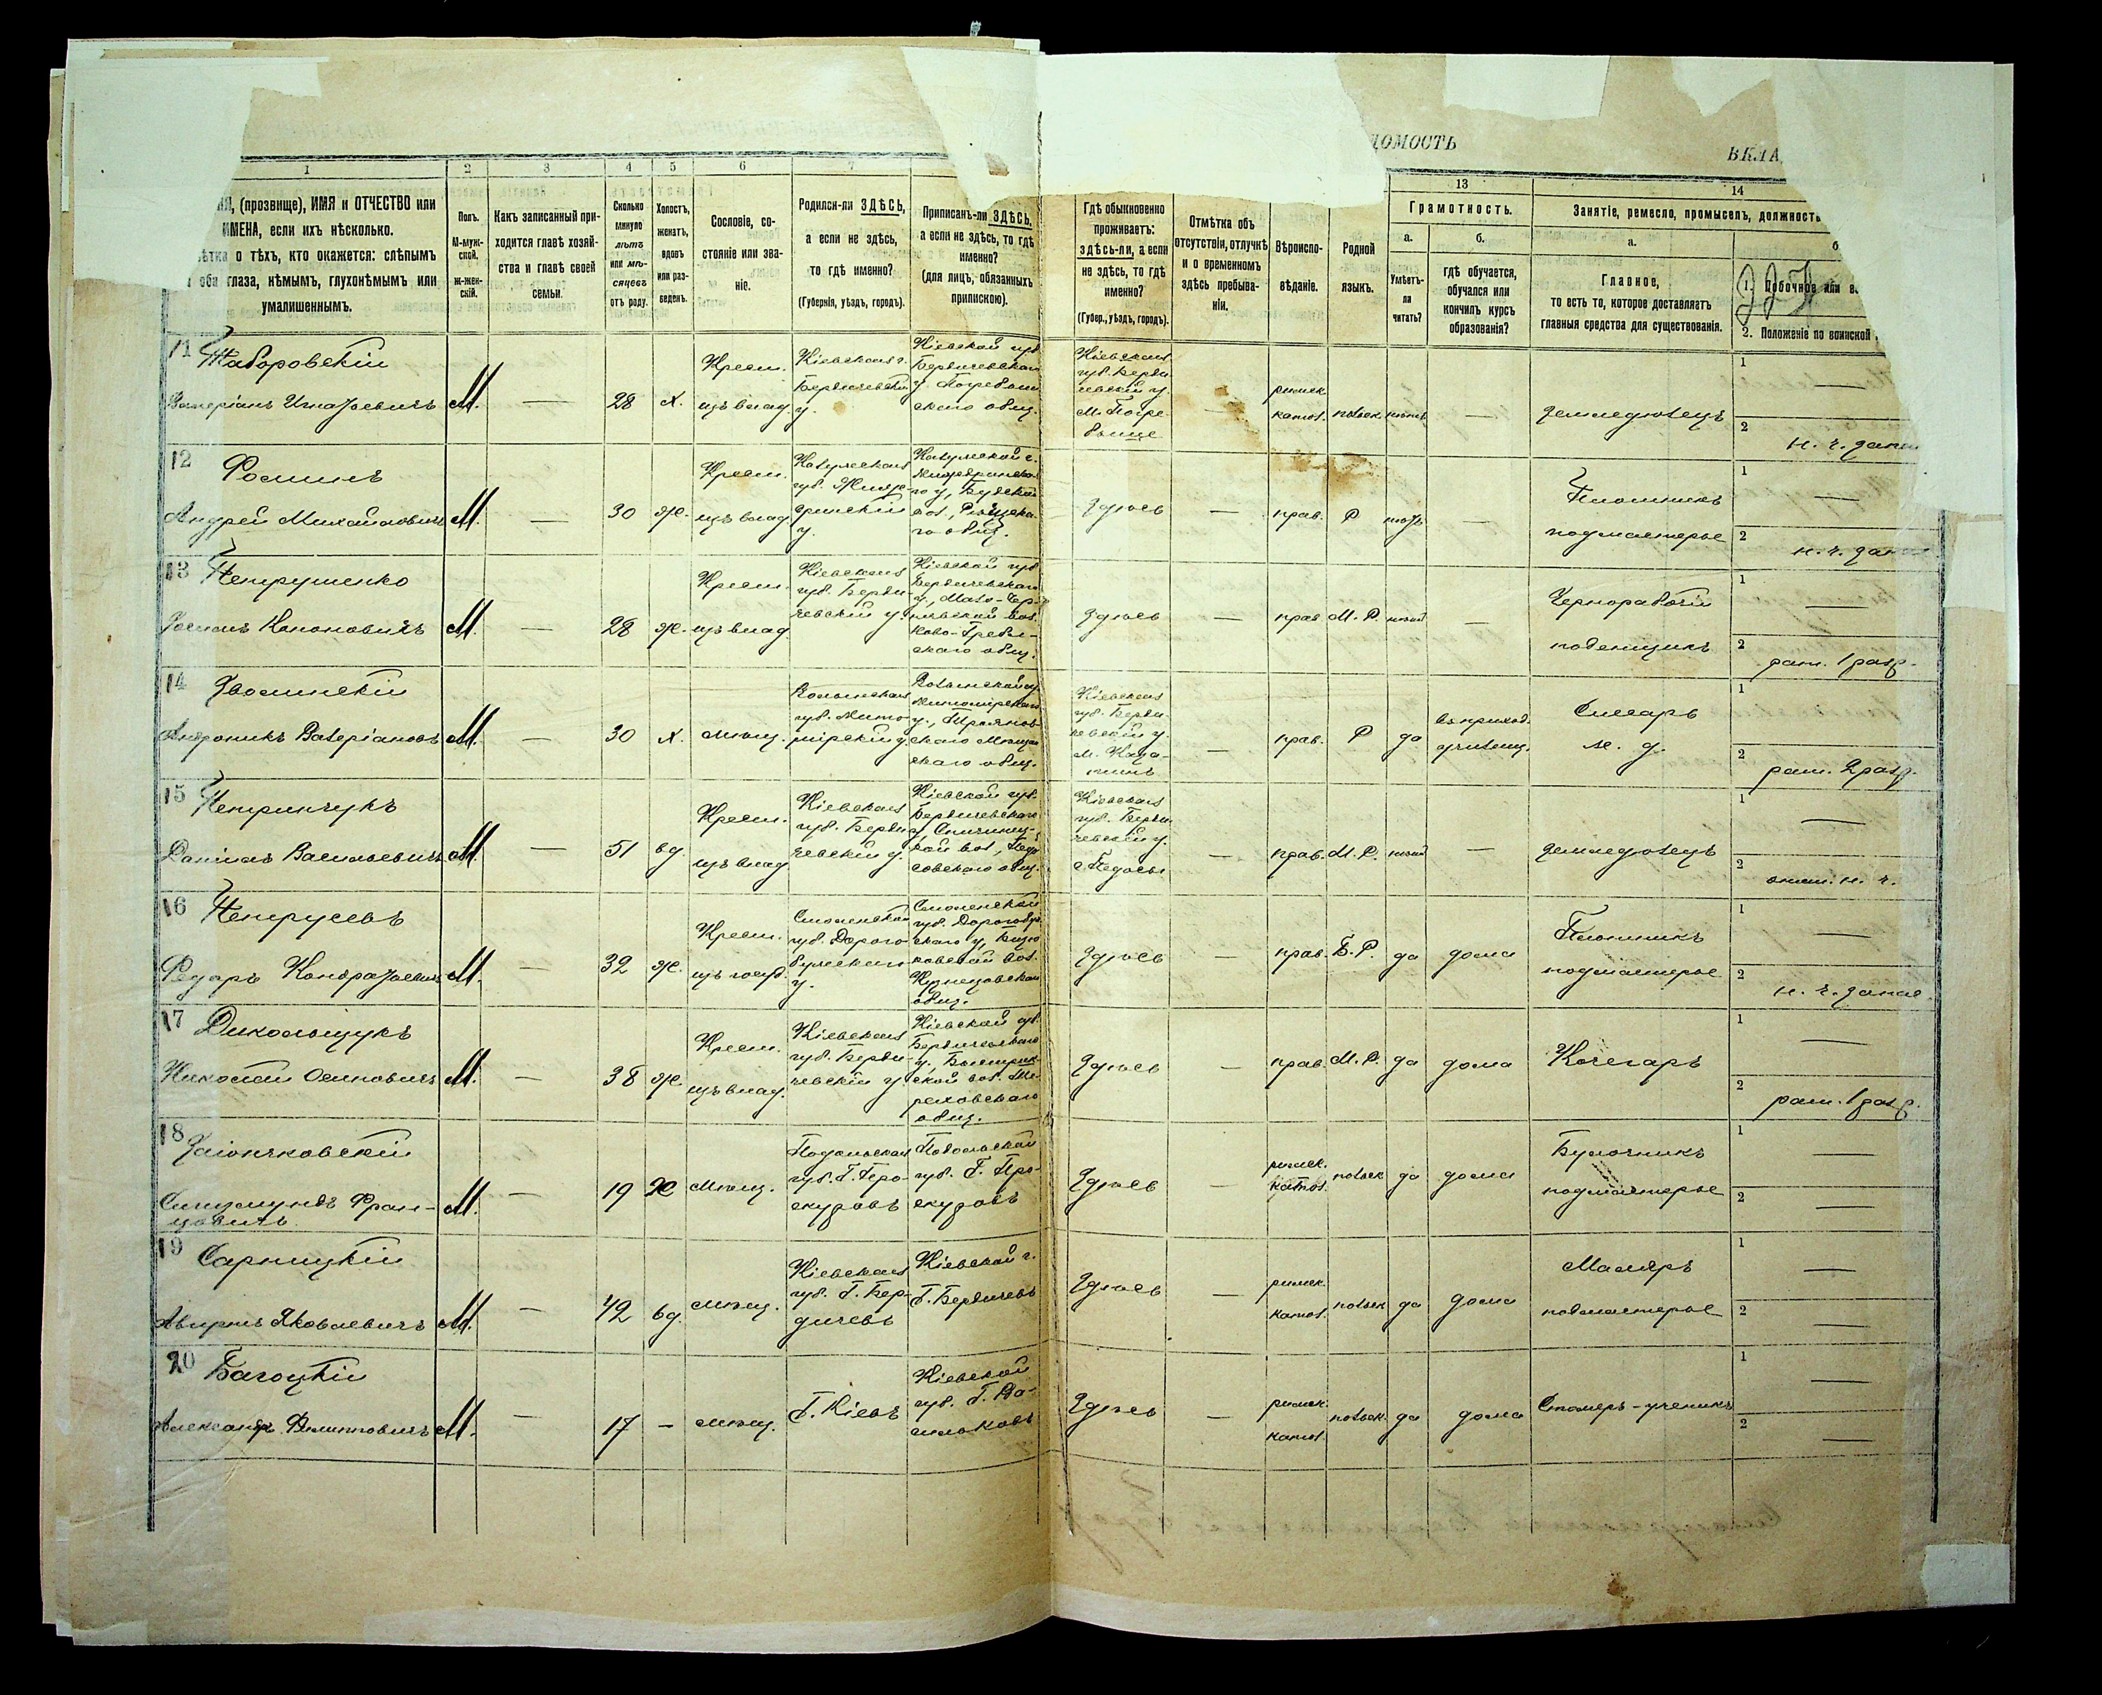 ДОМОСТЬ
ВКЛА
1
2
3
4
5
6
7
13
14
(прозвище), ИМЯ и ОТЧЕСТВО или
ИМЕНА, если ихъ нѣсколько.
о тѣхъ, кто окажется: слѣпымъ
на оба глаза, нѣмымъ, глухонѣмымъ или
умалишеннымъ.
Полъ.
М-муж-
ской.
ж-жен-
скій.
Какъ записанный при-
ходится главѣ хозяй-
ства и главѣ своей
семьи.
Сколько
минуло
лѣтъ
или мѣ-
сяцевъ
отъ роду.
Холостъ,
женатъ,
вдовъ
или раз-
веденъ.
Сословіе, со-
стояніе или зва-
ніе.
Родился-ли ЗДѢСЬ,
а если не здѣсь,
то гдѣ именно?
(Губернія, уѣздъ, городъ).
Приписанъ-ли ЗДѢСЬ,
а если не здѣсь, то гдѣ
именно?
(для лицъ, обязанныхъ
припискою).
Гдѣ обыкновенно
проживаетъ:
здѣсь-ли, а если
не здѣсь, то гдѣ
именно?
(Губер., уѣздъ, городъ).
Отмѣтка объ
отсутствіи, отлучкѣ
и о временномъ
здѣсь пребыва-
ніи.
Вѣроиспо-
вѣданіе.
Родной
языкъ.
Грамотность.
а.
Умѣетъ-
ли
читать?
б.
гдѣ обучается,
обучался или
кончилъ курсъ
образованія?
Занятіе, ремесло, промыселъ, должность
а.
Главное,
то есть то, которое доставляетъ
главныя средства для существованія.
б.
1. Побочное или
2. Положеніе по воинской
11
Таборовскій
Валеріанъ Игнатьевичъ
М.
—
28
х.
Крест.
изъ влад.
Кіевская г.
Бердичевскій
у.
Кіевской губ.
Бердичевскаго
у. Погребищ
скаго общ.
Кіевская
губ. Берди
чевскій у.
М. Погре
бище
—
римск.
катол.
польск.
нѣтъ
—
земледѣлецъ
1
—
2
н. ч. запас
12
Фоминъ
Андрей Михайловичъ
М.
—
30
ж.
Крест.
изъ влад.
Калужская
губ. Жизд-
ринскій
у.
Калужской г.
Жиздринска-
го у., Будской
вол.,
го общ.
Здѣсь
—
прав.
Р
нѣтъ
—
Плотникъ
подмастерье
1
—
2
н. ч. запас
13
Петрушенко
Кононовичъ
М.
—
28
ж.
Крест.
изъ влад.
Кіевская
губ. Берди-
чевскій у.
Кіевской губ.
Бердичевскаго
у., Мало-Чер-
нявской вол.
Ново-Гребл-
скаго общ.
Здѣсь
—
прав.
М. Р.
нѣтъ
—
Чернорабочій
поденщикъ
1
—
2
рат. 1 разр.
14
Зволинскій
Андроникъ Валеріановъ
М.
—
30
х.
мѣщ.
Волынская
губ. Жито-
мірскій у.
Волынской г.
Житомірскаго
у., Трояновскаго мѣщан
скаго общ.
Кіевская
губ. Берди-
чевскій у.
М. Каза-
тинъ
—
прав.
Р
да
въ приход.
училищ.
Слесарь
ж. д.
1
2
рат. 2 разр.
15
Петринчукъ
Даніилъ Васильевичъ
М.
—
51
вд.
Крест.
изъ влад.
Кіевская
губ. Берди
чевскій у.
Кіевской губ.
Бердичевскаго
у. Спичинец-
кой вол., Педо
совскаго общ.
Кіевская
губ. Берди
чевскій у.
с. Педосы
—
прав.
М. Р.
нѣтъ
—
земледѣлецъ
1
—
2
отст. н. ч.
16
Петрусевъ
Федоръ Кондратьевичъ
М.
—
32
ж.
Крест.
изъ госуд.
Смоленской
губ. Дорого
бужскаго
у.
Смоленской
губ. Дорогобуж
скаго у., Бизю
ковской вол.
Кузнецовскаго
общ.
Здѣсь
—
прав.
Б. Р.
да
дома
Плотникъ
подмастерье
1
—
2
н. ч. запас.
17
Николай Осиповичъ
М.
—
38
ж.
Крест.
изъ влад.
Кіевская
губ. Берди-
чевскій у.
Кіевской губ.
Бердичевскаго
у., Быстрик-
ской вол. Те-
реховскаго
общ.
Здѣсь
—
прав.
М. Р.
да
дома
Кочегаръ
1
—
2
рат. 1 разр.
18
Заіончковскій
Сигизмундъ Фран-
цовичъ
М.
—
19
Х
мѣщ.
Подольская
губ. Г. Про-
скуровъ
Подольской
губ. Г. Про-
скуровъ
Здѣсь
—
римск.
катол.
польск
да
дома
Булочникъ
подмастерье
1
—
2
—
19
Сарницкій
Яковлевичъ
М.
—
42
вд.
мѣщ.
Кіевская
губ. Г. Бер-
дичевъ
Кіевской г.
Г. Бердичевъ
Здѣсь
—
римск.
катол.
польск
да
дома
Маляръ
подмастерье
1
—
2
—
20
Багоцкій
Александръ Филипповичъ
М.
—
17
—
мѣщ.
Г. Кіевъ
Кіевской
губ. Г. Ва-
сильковъ
Здѣсь
—
римск.
катол.
польск.
да
дома
Столяръ-ученикъ
1
—
2
—